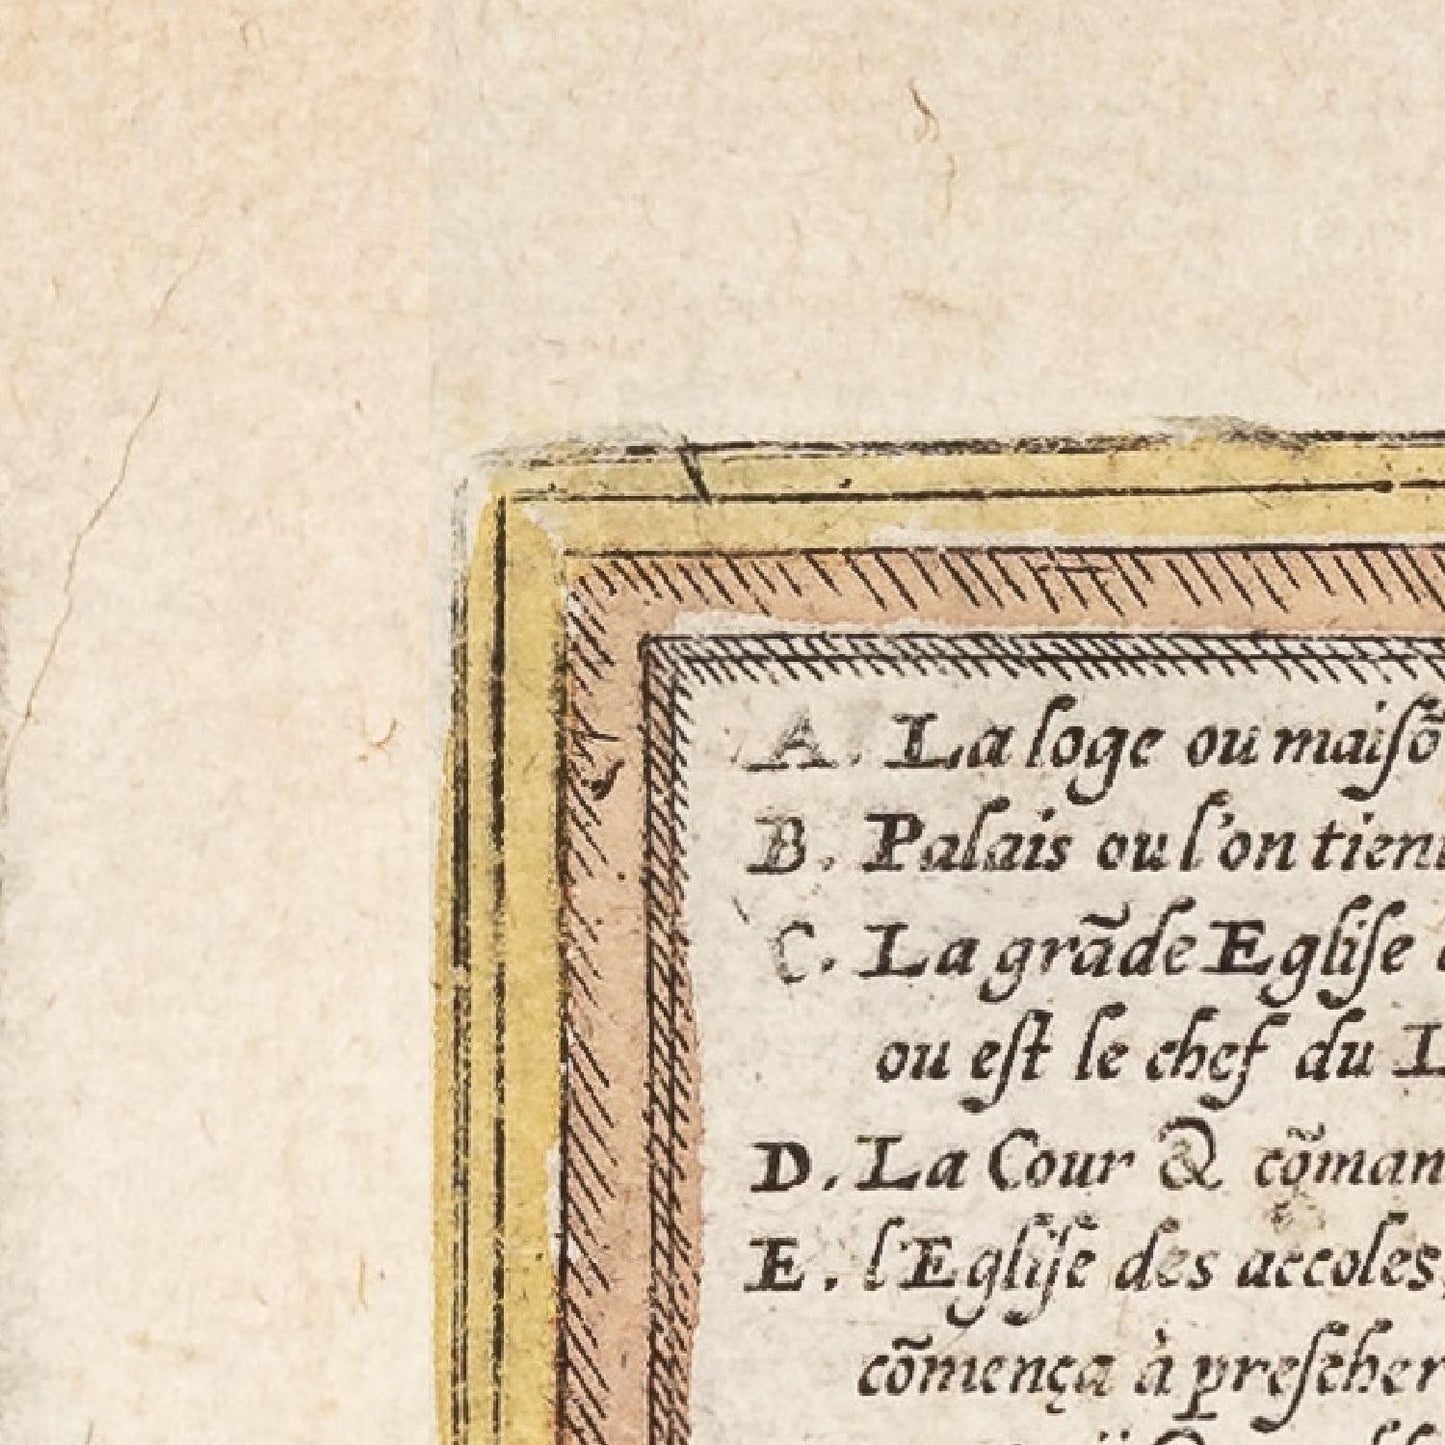 A. La loge ou maiſõ
B. Palais ou l'on tient
C. La grãde Egliſe
ou eſt le chef du
D. La Cour & cõman
E. l'Egliſe des accoles,
cõmença à preſcher